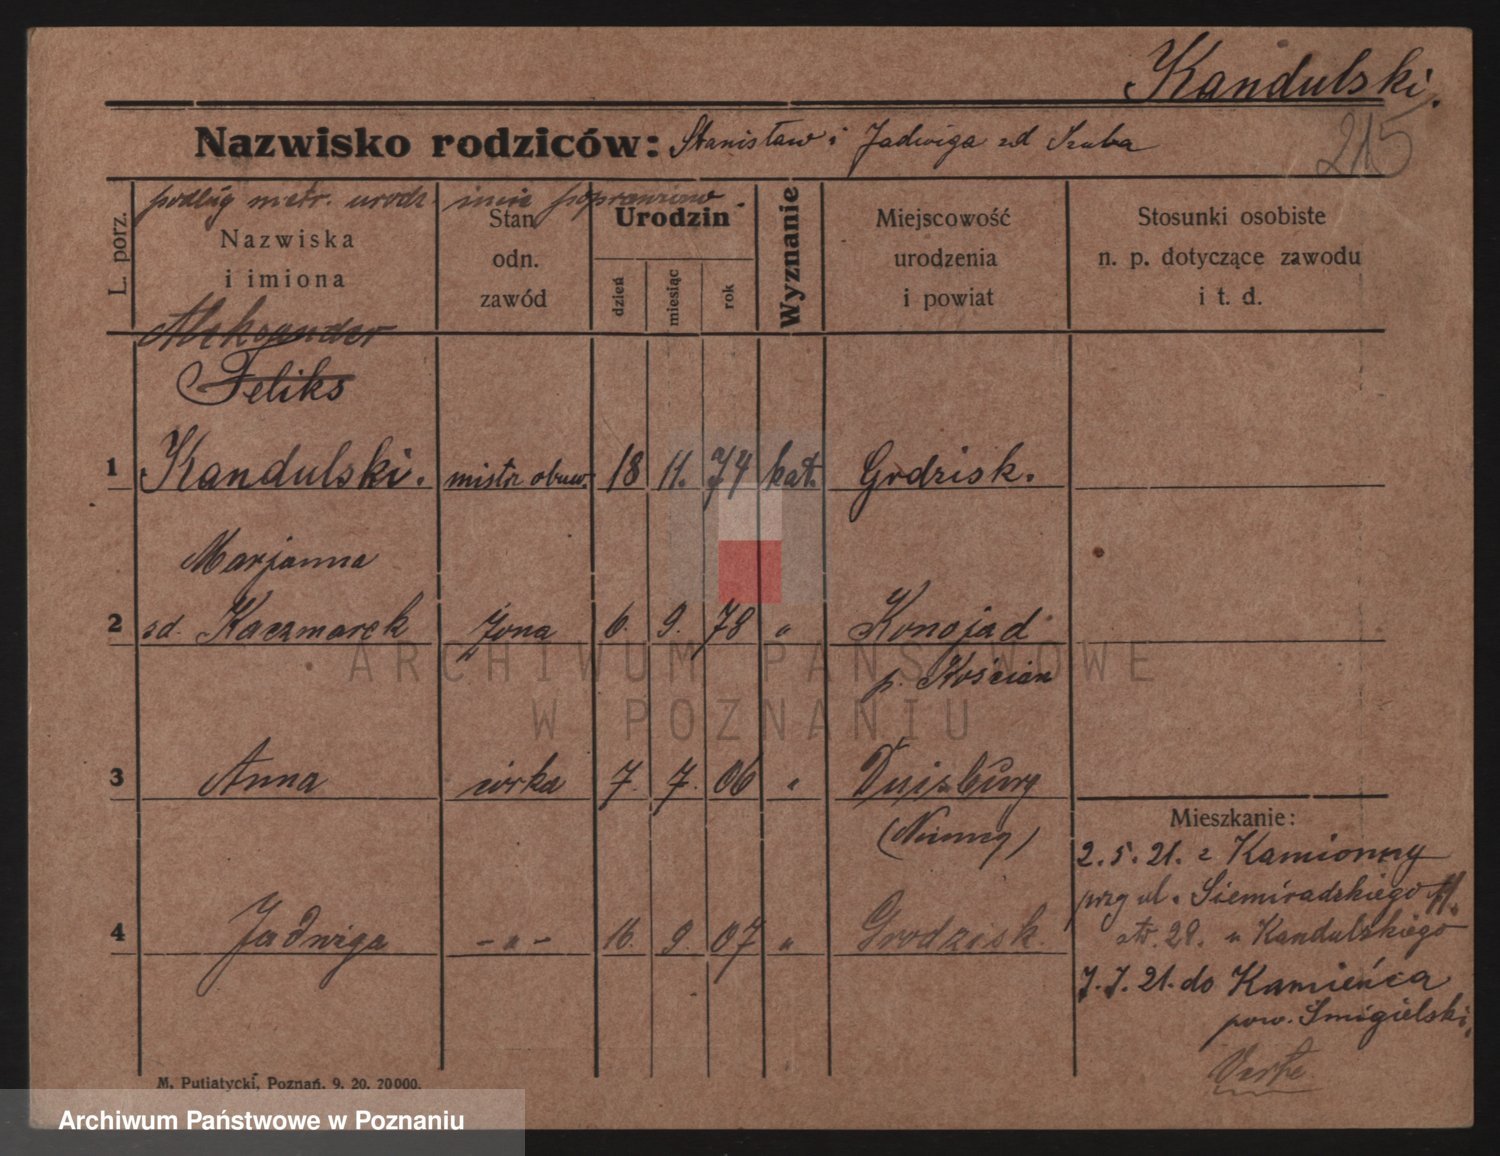 Kandulski.
215
Nazwisko rodziców: Stanisław i Jadwiga zd Szuba
podług metr. urodz. imię poprawiono
L. porz.
Nazwiska
i imiona
Stan
odn.
zawód
Urodzin
dzień
miesiąc
rok
Wyznanie
Miejscowość
urodzenia
i powiat
Stosunki osobiste
n. p. dotyczące zawodu
i t. d.
Aleksander
Feliks
1 Kandulski. mistrz obuw. 18 11. 74 kat. Grodzisk.
Marjanna
2 zd. Kaczmarek żona 6. 9. 78 " Konojad
p. Kościan
3 Anna córka 7. 7. 06 " Duisburg
(Niemcy)
4 Jadwiga - " - 16. 9. 07 " Grodzisk.
Mieszkanie:
2. 5. 21. z Kamionny
przy ul. Siemiradzkiego 11.
str. 28. u Kandulskiego
7. 7. 21. do Kamieńca
pow. Śmigielski.
M. Putiatycki, Poznań. 9. 20. 20000.
ARCHIWUM PAŃSTWOWE
W POZNANIU
Archiwum Państwowe w Poznaniu